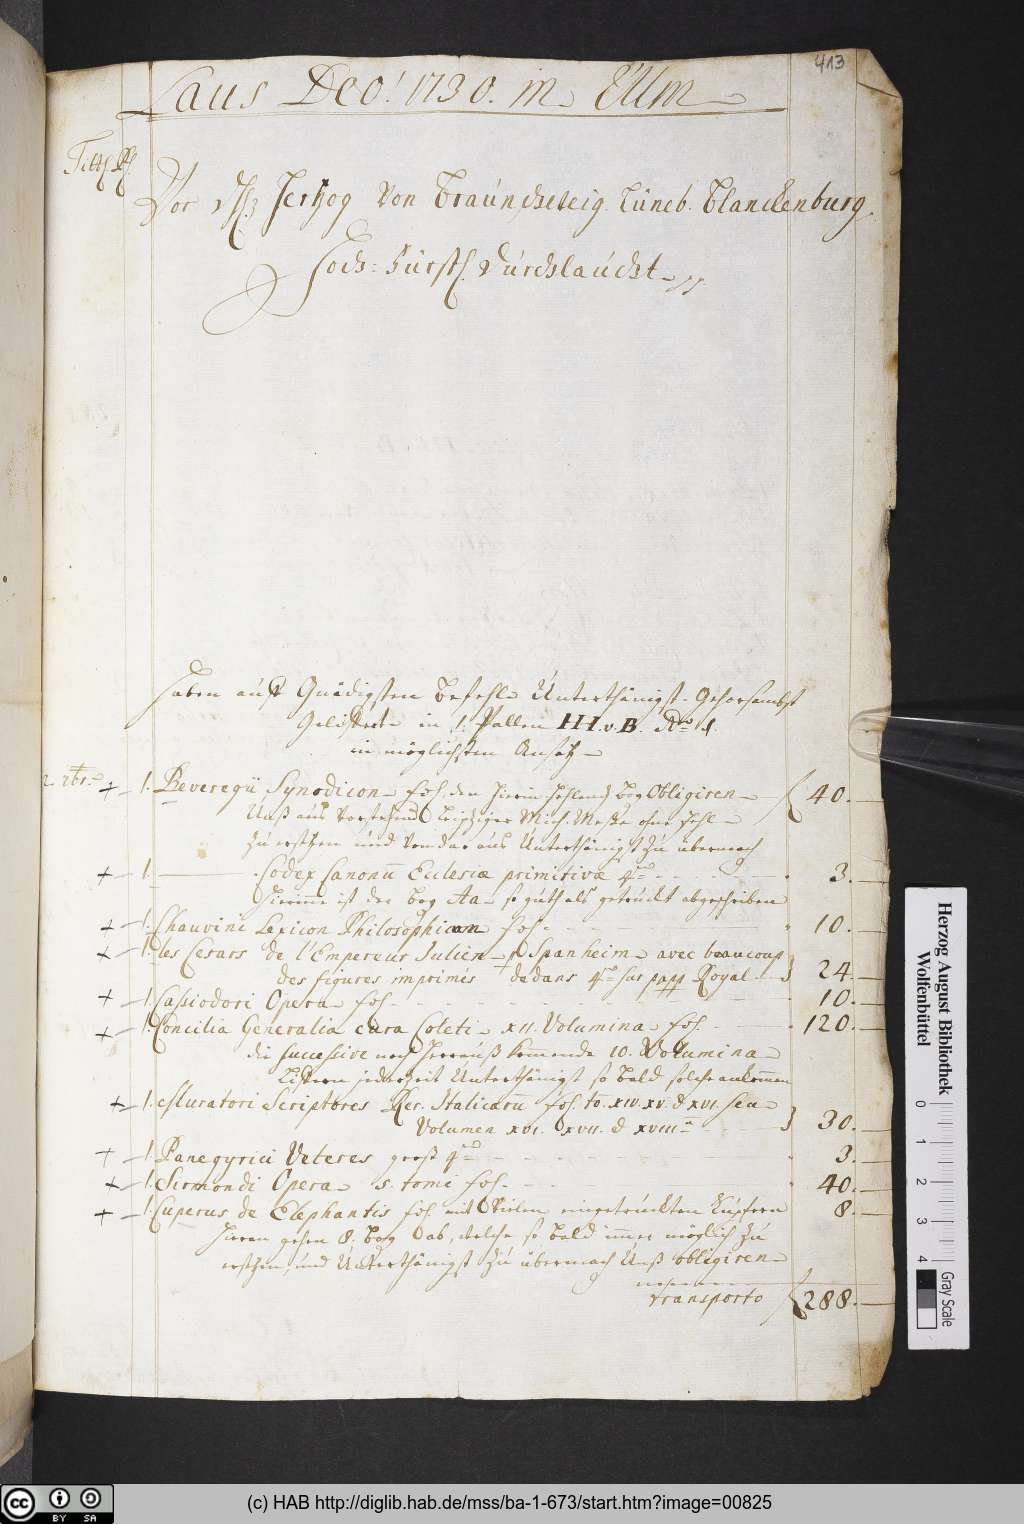 413
Laus Deo! 1730. in Ulm
Titl.
Vor Hertzog von Braunschweig. Lüneb. Blanckenburg
Hoch-Fürstl. Durchlaucht
Haben auff Gnädigsten Befehl Unterthänigst-Gehorsambst
Gelieffert in 1. Ballen H H. v. B. No. 1.
in möglichsten Ansatz
+ 1. Beveregii Synodicon fol. den hierin fehlend bog Obligiren 40.
Unß aus vorstehend Leipziger Mich. Messe ohne fehl
zu ersetzen und von dar aus Unterthänigst zu übermach
+ 1. Codex Canonū Ecclesiæ primitivæ 4to 3.
Hierinne ist der bog Aa so guth als getruckt abgeschrieben
+ 1. Chauvini Lexicon Philosophicum fol. 10.
+ 1. les Cesars de l'Empereur Julien p Spanheim avec beaucoup
des figures imprimés dedans 4to sur papp Royal 24.
+ 1. Cassiodori Opera fol. 10.
+ 1. Concilia Generalia cura Coleti XII. Volumina fol. 120.
die successive noch herauß kommende 10. Volumina
Liffern jederzeit Unterthänigst so bald solche ankommen
+ 1. Muratori Scriptores Rer. Italicarū fol. to. XIV. XV. & XVI. seu
Volumen XVI. XVII. & XVIII. 30.
+ 1. Panegyrici Veteres groß 4to 3.
+ 1. Sirmondi Opera 5. tomi fol. 40.
+ 1. Cuperus de Elephantis fol. mit Vielen eingetruckten Kupfern 8.
Hieran gehen 8. bog ab, welche so bald immer möglich zu
ersetzen, und Unterthänigst zu übermach Unß obligiren
transporto 288.
Herzog August Bibliothek
Wolfenbüttel
0 1 2 3 4
Gray Scale
cc BY SA
(c) HAB http://diglib.hab.de/mss/ba-1-673/start.htm?image=00825